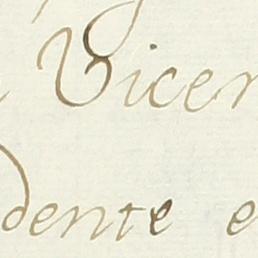 Vicen
dente e